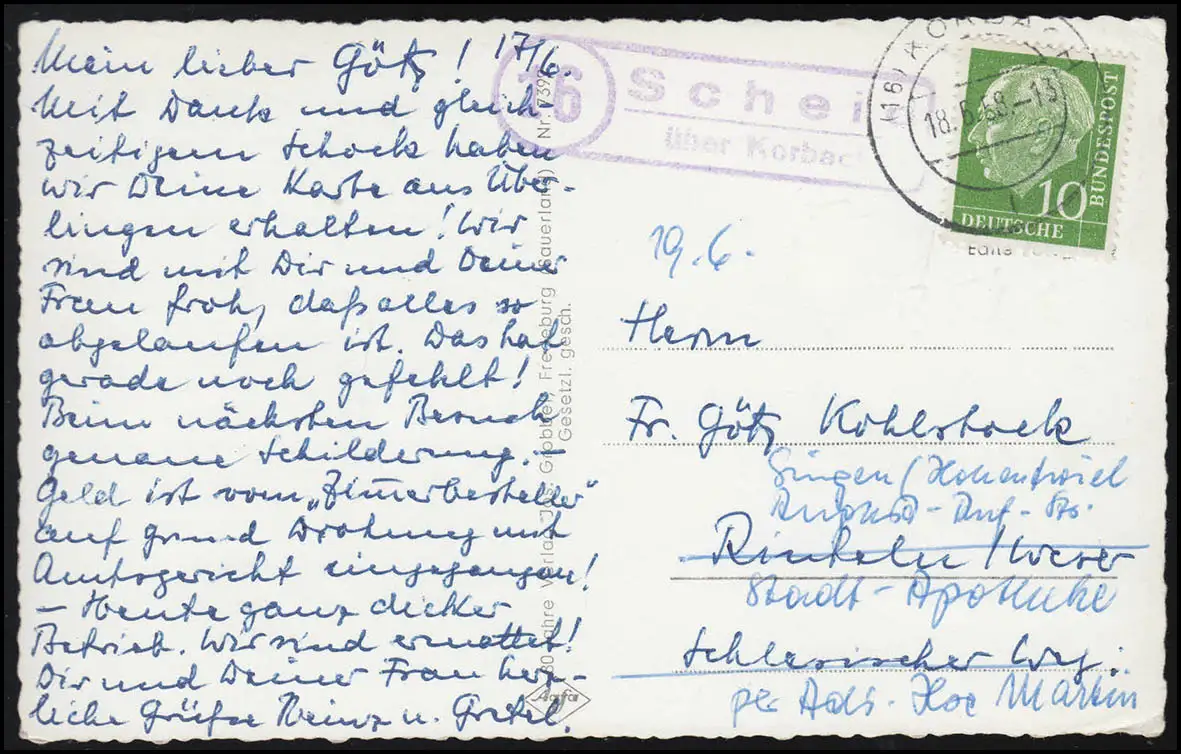 Mein lieber Götz! 17/6.
Mit Dank und gleich-
zeitigem Schock haben
wir Deine Karte aus Über-
lingen erhalten! Wir
sind mit Dir und Deiner
Frau froh, daß alles so
abgelaufen ist. Das hat
gerade noch gefehlt!
Beim nächsten Besuch
genaue Schilderung. –
Geld ist vom „Zimmerbesteller“
auf Grund Drohung mit
Amtsgericht eingegangen!
– Heute ganz dicker
Betrieb. Wir sind ermattet!
Dir und Deiner Frau herz-
liche Grüße Heinz u. Gretel.
Grobbel, Fredeburg (Sauerland) Nr. 739
Gesetzl. gesch.
Agfa
16 Scheid
über Korbach
(16) KORBACH
18.6.58.-13
DEUTSCHE BUNDESPOST
10
19.6.
Herrn
Fr. Götz Kohlstock
Singen/Hohentwiel
Rinteln/Weser
Stadt-Apotheke
Schlesischer Weg
per Adr. Martin